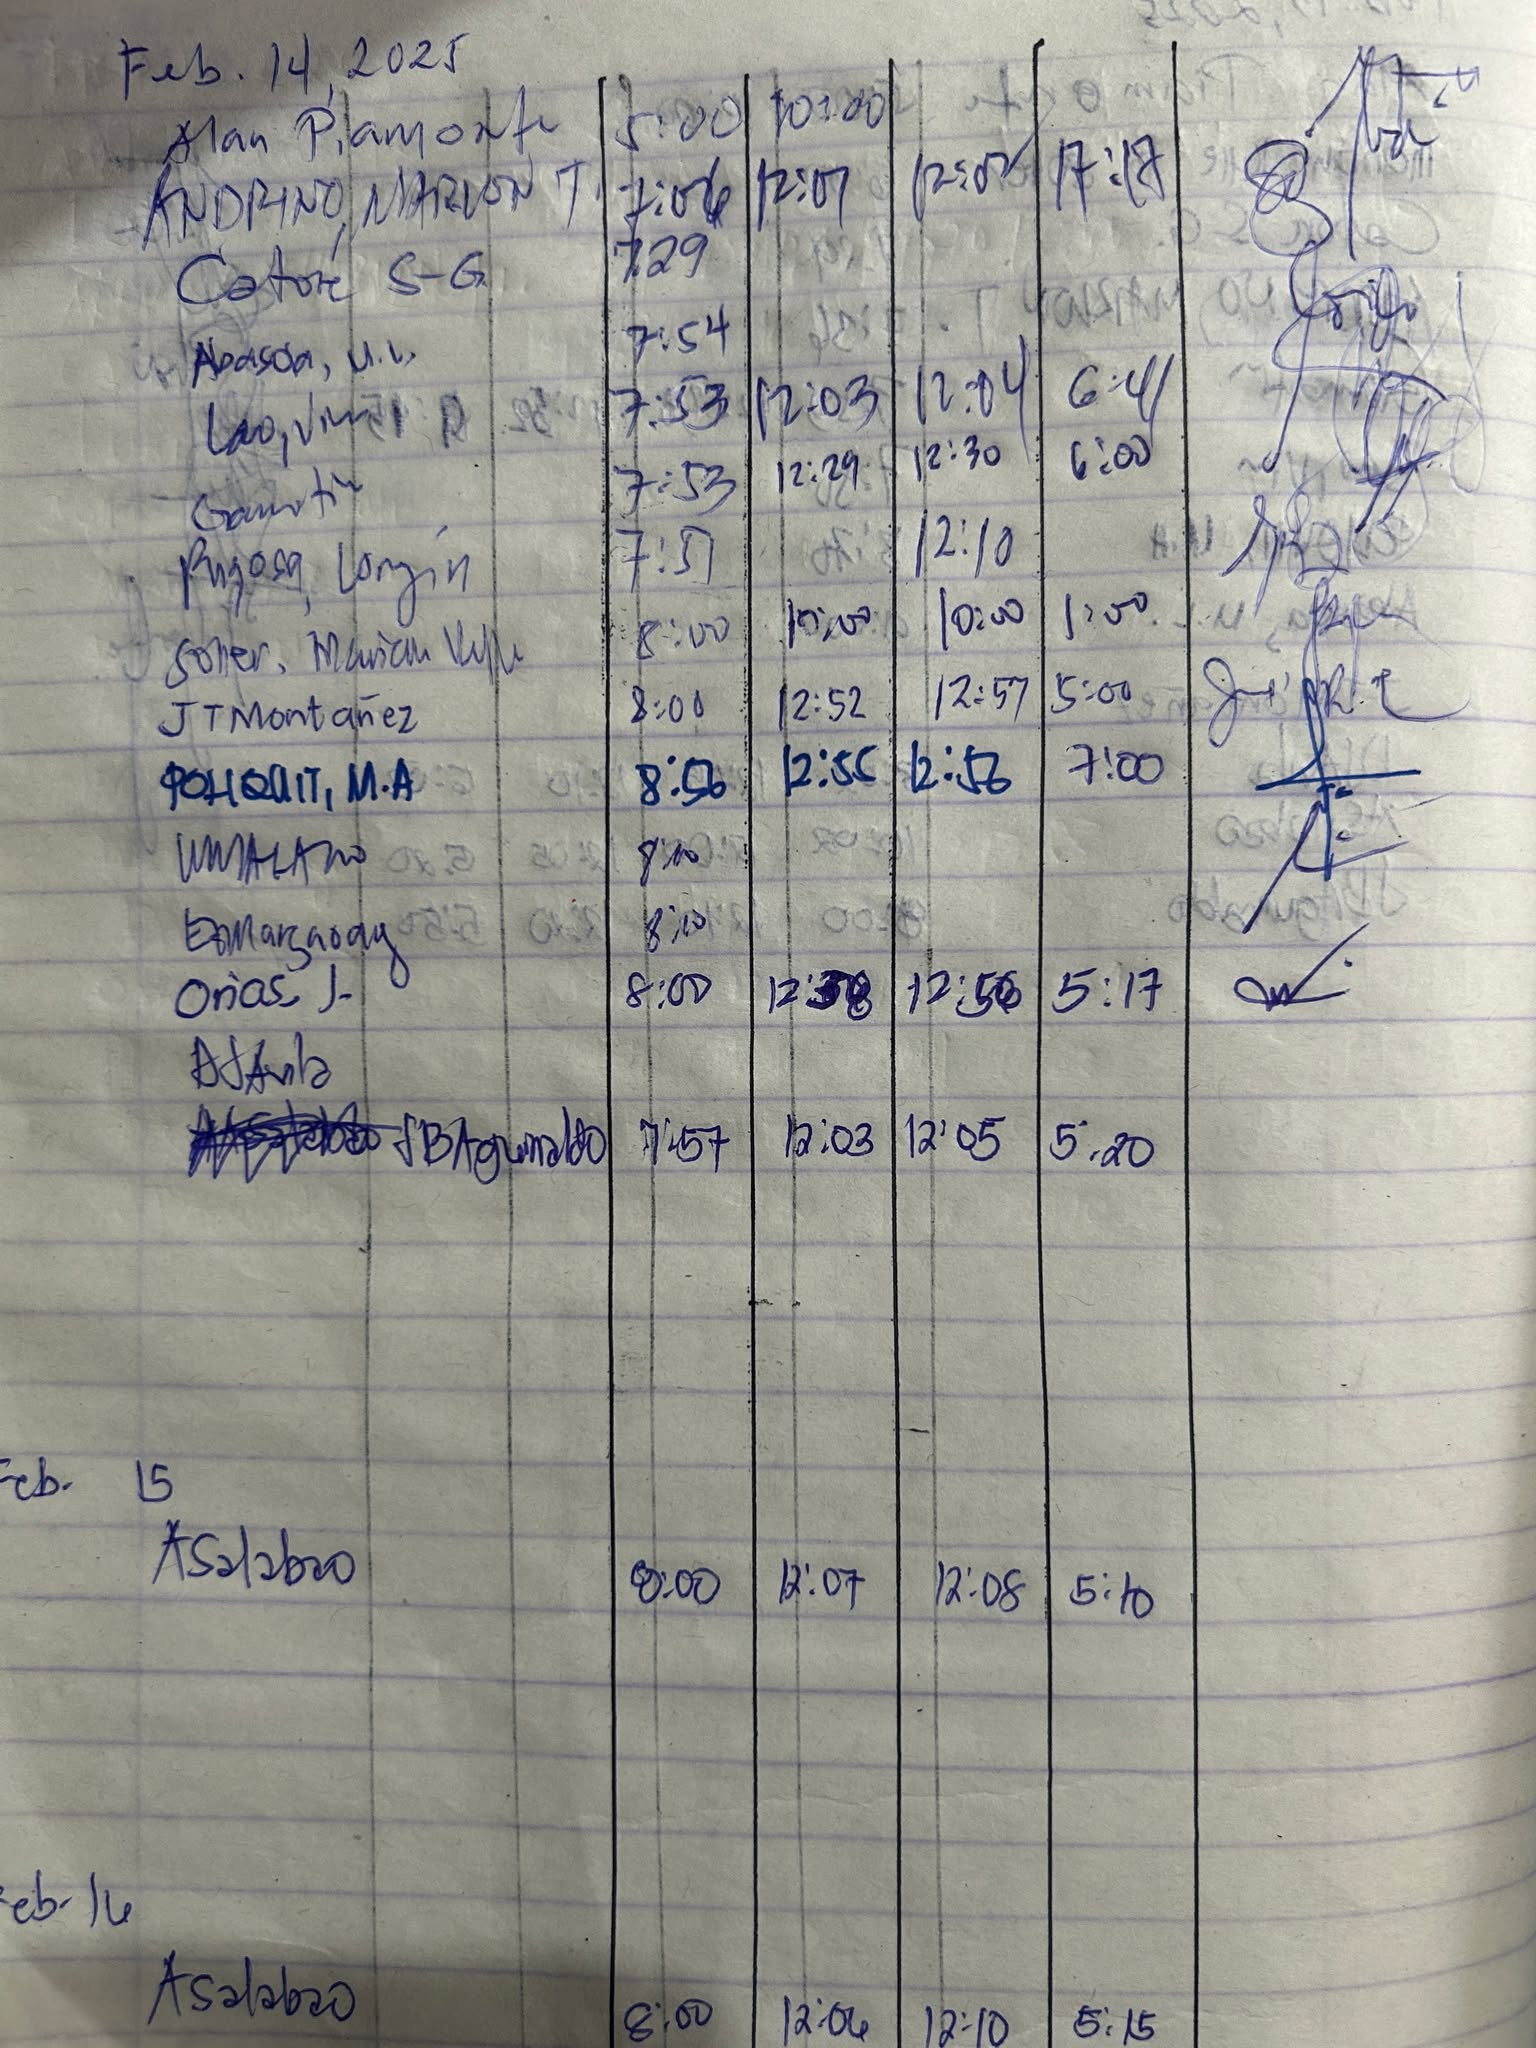 Feb. 14, 2025
Alan Piamonte 5:00 10:00
ANDRINO, MARVON T. 7:06 12:01 12:02 17:17
Catoré S-G 7:29
Abasoa, U.L. 7:54
Lao, 7:53 12:03 12:04 6:41
7:53 12:29 12:30 6:00
Pugosa, Longin 7:51 12:10
Soller, Marian 8:00 10:00 10:00 1:00
JTMontañez 8:00 12:52 12:57 5:00
POHIQUIT, M.A 8:56 12:55 12:56 7:00
UMALANO 8:10
8:10
Orias, J. 8:00 12:56 5:17
AJAvila
JBAguinaldo 7:57 12:03 12:05 5:20
Feb. 15
ASalabao 8:00 12:07 12:08 5:10
Feb. 16
ASalabao 8:00 12:06 12:10 5:15